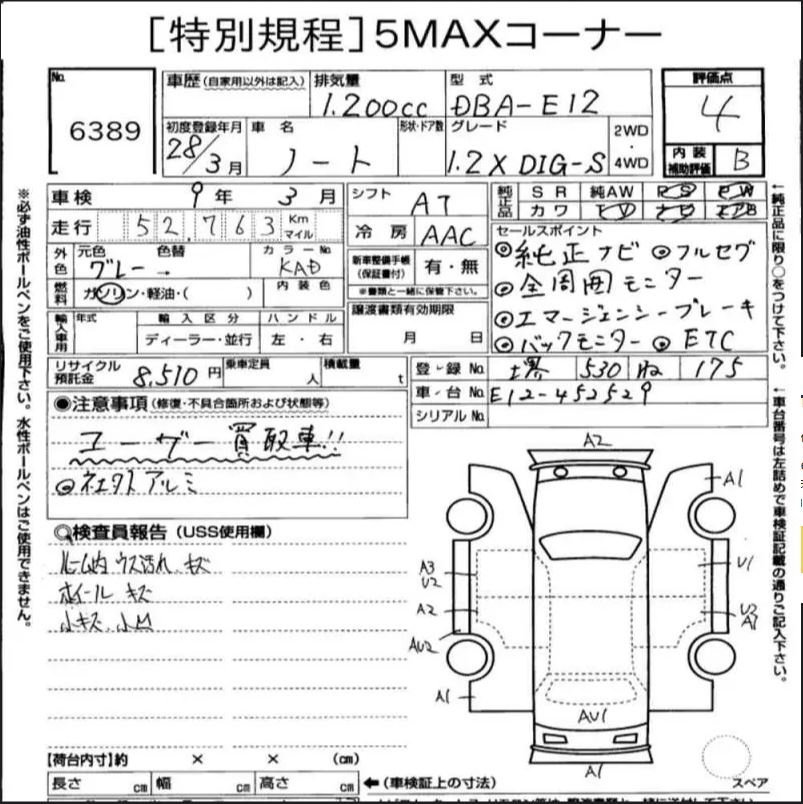 [特別規程] 5MAXコーナー
No. 6389
車歴 (自家用以外は記入)
排気量 1.200cc
型式 DBA-E12
評価点 4
初度登録年月 28/3月
車名 ノート
形状・ドア数
グレード 1.2X DIG-S
2WD・4WD
内装補助評価 B
車検 9年 3月
シフト AT
純正品 SR 純AW PS PW
カワ TV ナビ エアB
走行 52,763 Km マイル
冷房 AAC
セールスポイント
◎純正ナビ ◎フルセグ
◎全周囲モニター
◎エマージェンシーブレーキ
◎バックモニター ◎ETC
外色 元色 グレー → 色替
カラーNo. KAD
新車整備手帳(保証書付) 有・無
※書類と一緒に保管下さい。
燃料 ガソリン・軽油・( )
内装色
譲渡書類有効期限
月 日
輸入車用 年式 輸入区分 ハンドル
ディーラー・並行 左・右
リサイクル預託金 8,510円
乗車定員 人
積載量 t
登録No. 堺 530 ね 175
車台No. E12-452529
シリアルNo.
◎注意事項 (修復・不具合箇所および状態等)
ユーザー買取車!!
◎社外アルミ
検査員報告 (USS使用欄)
ルーム内 ウス汚れ、キズ
ホイール キズ
小キズ、小凹
A2
A1
A3
U2
U1
A2
U2
A1
AU2
A1
AU1
A1
スペア
【荷台内寸】約 × × (cm)
長さ cm 幅 cm 高さ cm
←(車検証上の寸法)
※必ず油性ボールペンをご使用下さい。水性ボールペンはご使用できません。
←純正品に限り○をつけて下さい。
←車台番号は左詰めで車検証記載の通りご記入下さい。